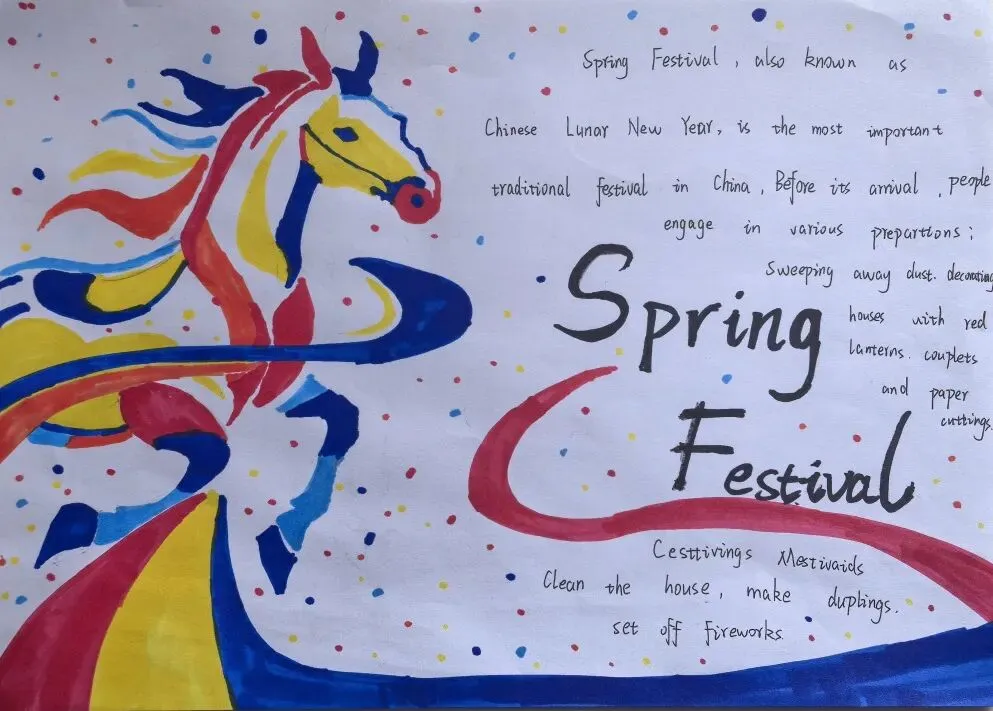 Spring Festival, also known as
Chinese Lunar New Year, is the most important
traditional festival in China, Before its arrival, people
engage in various prepartions;
Sweeping away dust. decorating
houses with red
lanterns. couplets
and paper
cuttings.
Spring
Festival
Cesttivings Mestivaids
Clean the house, make duplings.
set off fireworks.